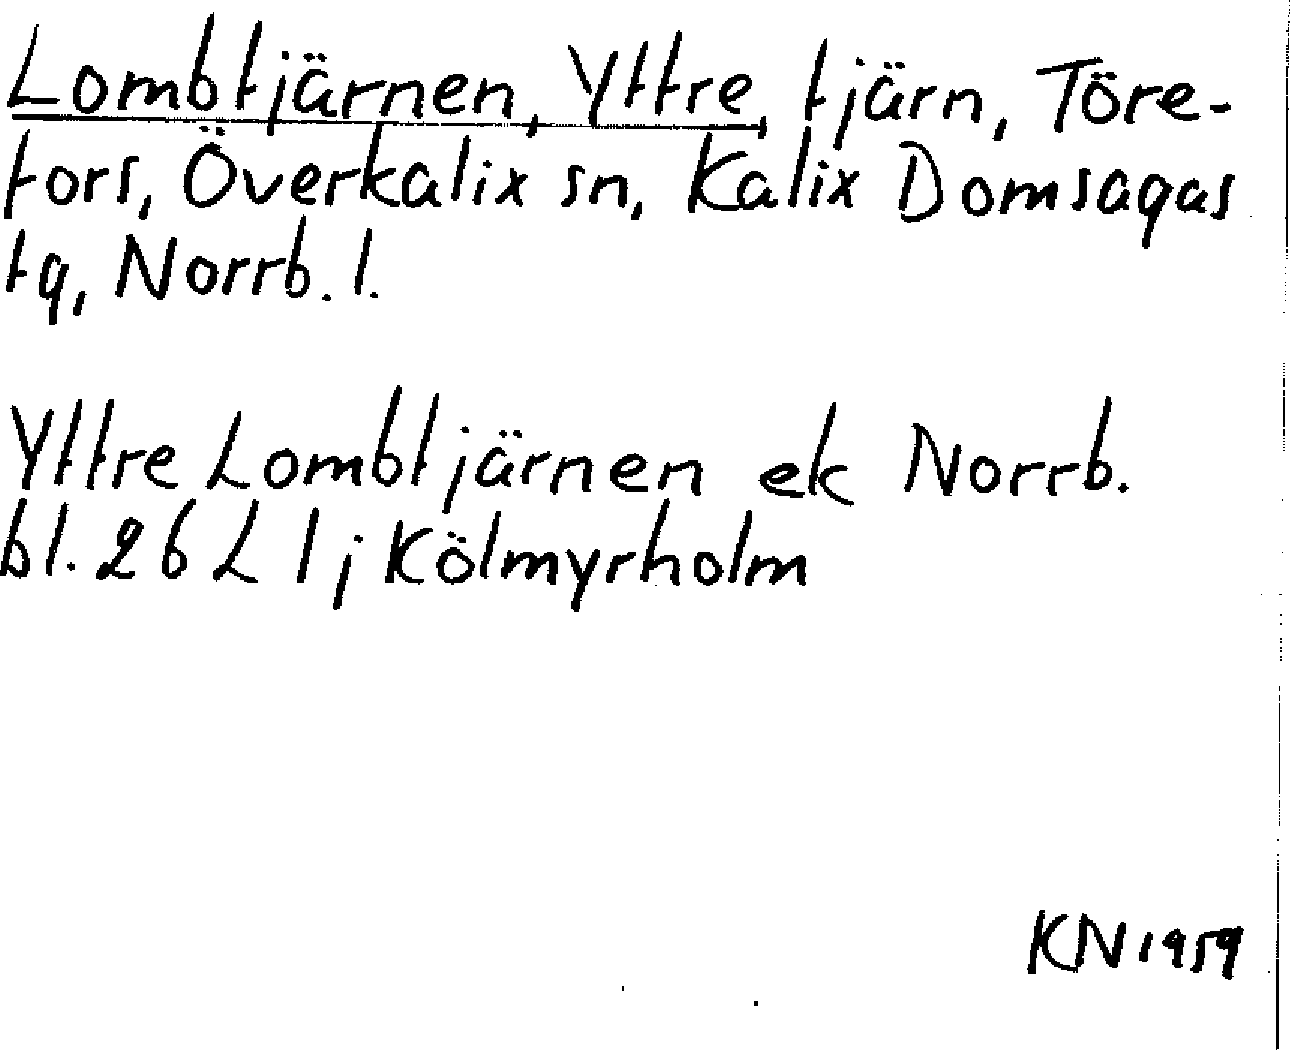 Lombtjärnen, Yttre, tjärn, Töre-
fors, Överkalix sn, Kalix Domsagas
tg, Norrb. l.
Yttre Lombtjärnen ek Norrb.
bl. 26 L 1; Kölmyrholm
KN 1959